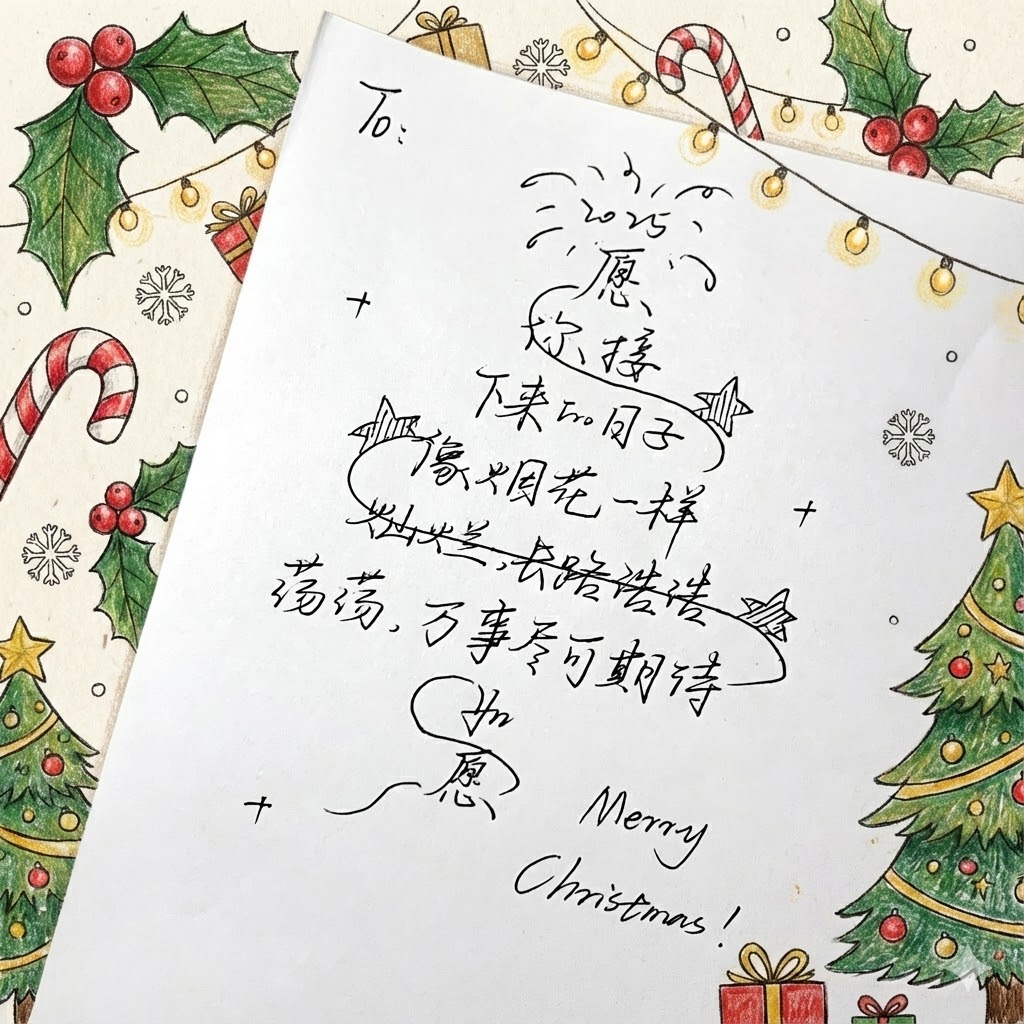 To:
2025
愿
你接
下来的日子
像烟花一样
灿烂,长路浩浩
荡荡,万事尽可期待
如
愿
Merry
Christmas!